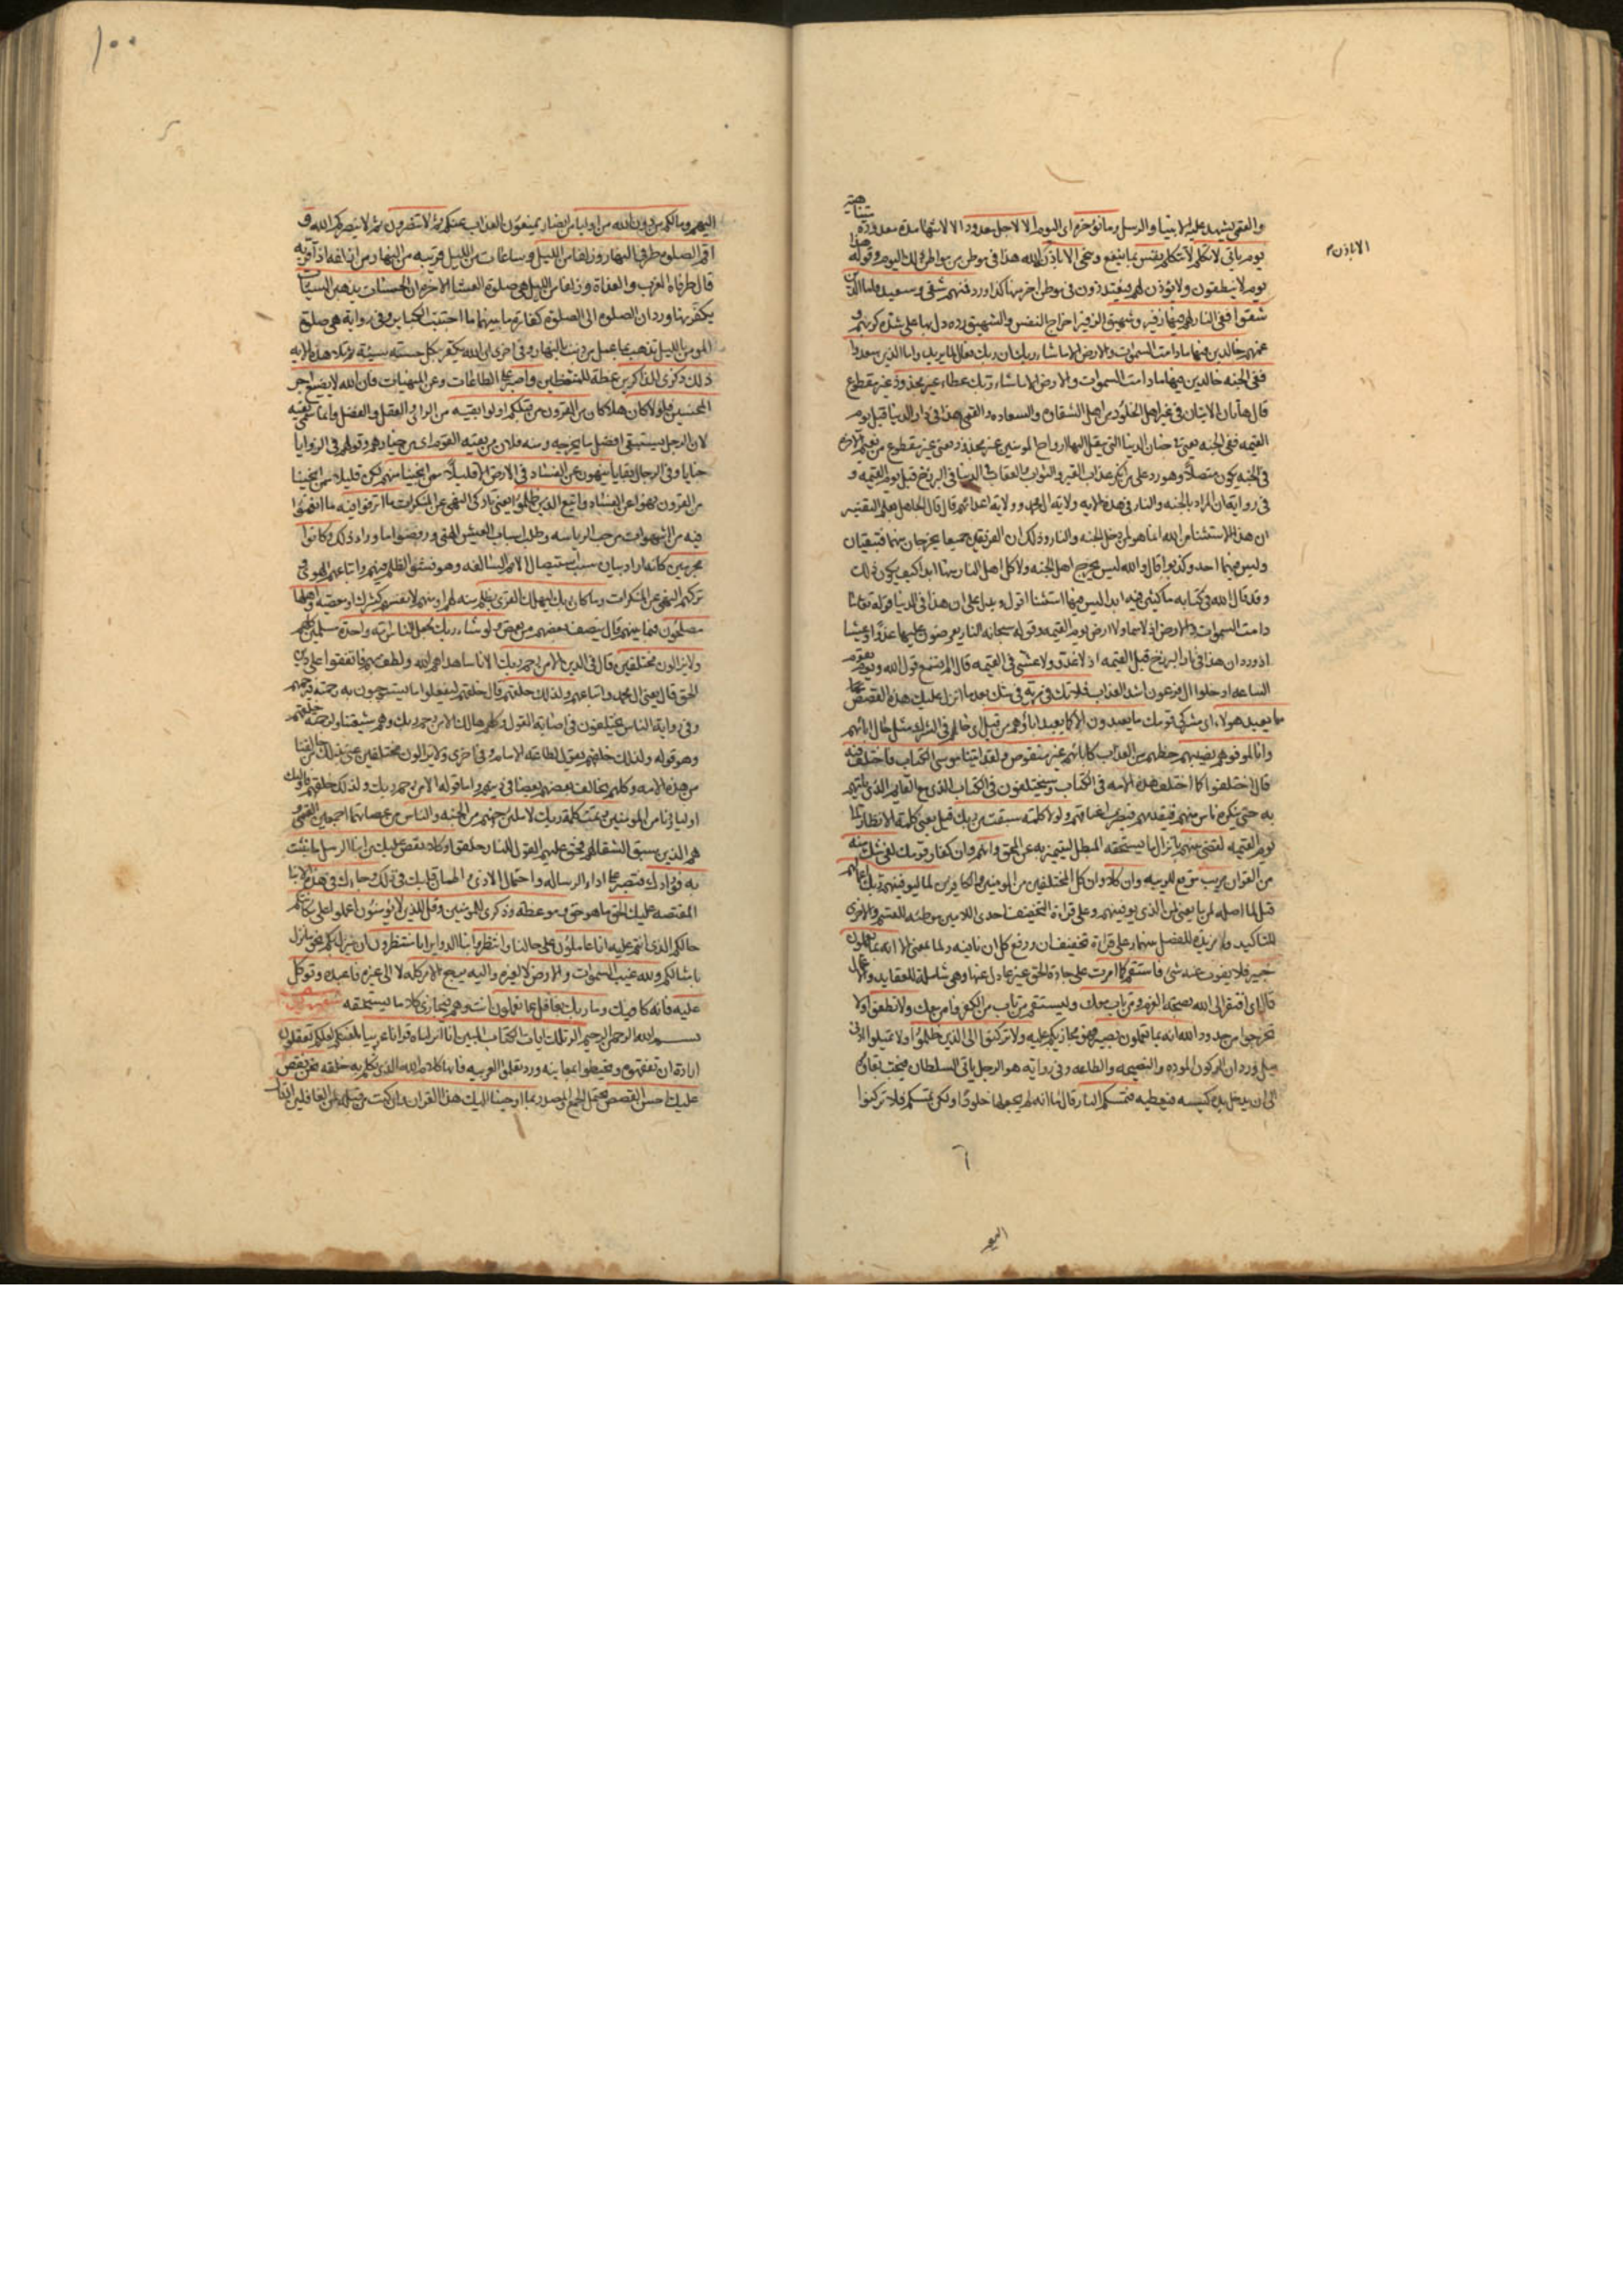 والقمي يشهد عليه الانبياء والرسل وما نؤخره اى اليوم الا لاجل معدود الا لانتهاء مدة معدودة متناهية
يوم يأتى لا تكلم لا تتكلم نفس بما ينفع وينجى الا باذن الله هذا فى موطن من مواطن ذلك اليوم وقوله هذا
الا باذنه
يوم لا ينطقون ولا يؤذن لهم فيعتذرون فى موطن اخر منها كذا ورد فمنهم شقى وسعيد فاما الذين
شقوا ففى النار لهم فيها زفير وشهيق الزفير اخراج النفس والشهيق رده دل بهما على شدة كربهم و
غمهم خالدين فيها ما دامت السموات والارض الا ما شاء ربك ان ربك فعال لما يريد واما الذين سعدوا
ففى الجنه خالدين فيها ما دامت السموات والارض الا ما شاء ربك عطاء غير مجذوذ غير مقطوع
قال هاتان الايتان فى غير اهل الخلود من اهل الشقاوة والسعاده والقمى هذا فى دار الدنيا قبل يوم
القيمه ففى الجنه يعنى فى جنان الدنيا التى ينقل اليها ارواح المومنين غير مجذوذ يعنى غير مقطوع من نعيم الاخرة
فى الجنه يكون متصلا وهو رد على من انكر عذاب القبر والثواب والعقاب فى الدنيا فى البرزخ قبل يوم القيمه و
فى رواية ان المراد بالجنه والنار فى هذه الايه ولاية ال محمد وولاية اعدائهم قال قال الجاهل بعلم التفسير
ان هذا الاستثناء من الله انما هو لمن دخل الجنه والنار وذلك ان الفريقين جميعا يخرجان منهما فتبقيان
وليس فيهما احد وكذبوا قال والله ليس يخرج اهل الجنه ولا كل اهل النار منها ابدا كيف يكون ذلك
وقد قال الله فى كتابه ماكثين فيه ابدا ليس فيها استثناء اقول ويدل على ان هذا فى الدنيا قوله تعالى ما
دامت السموات والارض اذ لا سماء ولا ارض يوم القيمه وقوله سبحانه النار يعرضون عليها غدوا وعشيا
اذ ورد ان هذا فى نار البرزخ قبل القيمه اذ لا غدو ولا عشى فى القيمه قال الم تسمع قول الله ويوم تقوم
الساعه ادخلوا ال فرعون اشد العذاب فلا تك فى مرية فى شك بعد ما انزل عليك هذه القصص مما
يعبد هولاء اى مشركى قومك ما يعبدون الا كما يعبد اباؤهم من قبل اى حالهم فى الشرك مثل حال ابائهم
وانا لموفوهم نصيبهم حظهم من العذاب كابائهم غير منقوص ولقد اتينا موسى الكتاب فاختلف فيه
قال اختلفوا كما اختلف هذه الامه فى الكتاب وسيختلفون فى الكتاب الذى مع القايم الذى ياتيهم
به حتى ينكره ناس منهم فيقدمهم فيضرب اعناقهم ولولا كلمة سبقت من ربك قيل يعنى كلمة الانظار الى
يوم القيمه لقضى بينهم بانزال ما يستحقه المبطل ليتميز به عن المحق وانهم وان كفار قومك لفى شك منه
من القرآن مريب موقع للريبه وان كلا وان كل المختلفين من المومنين والكافرين لما ليوفينهم ربك اعمالهم
قيل لما اصله لمن ما يعنى لمن الذى يوفينهم وعلى قراءة التخفيف احدى اللامين موطئه للقسم والاخرى
للتاكيد وما مزيدة للفصل بينهما وعلى قراءة تخفيف ان ورفع كل ان نافيه ولما بمعنى الا انه بما يعملون
خبير فلا يفوت عنه شى فاستقم كما امرت على جادة الحق غير عادل عنها وهى شاملة للعقايد والاعمال
قال اى افتقر الى الله بصحة العزم ومن تاب معك وليستقم من تاب من الكفر وامن معك ولا تطغوا ولا
تخرجوا من حدود الله انه بما تعملون بصير فهو مجازيكم عليه ولا تركنوا الى الذين ظلموا ولا تميلوا ادنى
ميل ورد ان الركون المودة والنصيحه والطاعه وفى رواية هو الرجل ياتى السلطان فيحب بقاءه
الى ان يدخل يده كيسه فيعطيه فتمسكم النار قال اما انه لم يجعلها خلودا ولكن تمسكم فلا تركنوا
اليهم
١٠٠
اليهم وما لكم من دون الله من اولياء من انصار يمنعون العذاب عنكم ثم لا تنصرون ثم لا ينصركم الله و
اقم الصلوة طرفى النهار وزلفا من الليل وساعات من الليل قريبه من النهار من ازلفه اذا قربه
قال طرفاه المغرب والغداة وزلفا من الليل هى صلوة العشاء الاخرة ان الحسنات يذهبن السيئات
يكفر بها ورد ان الصلوة الى الصلوة كفارة ما بينهما ما اجتنبت الكباير وفى رواية هى صلوة
المومن بالليل تذهب بما عمل من ذنب بالنهار وفى اخرى ان الله يكفر بكل حسنة سيئة ثم تلا هذه الايه
ذلك ذكرى للذاكرين عظة للمتعظين واصبر على الطاعات وعن المنهيات فان الله لا يضيع اجر
المحسنين فلولا كان فهلا كان من القرون من قبلكم اولوا بقيه من الراى والعقل والفضل وانما سمى بقيه
لان الرجل يستبقى افضل ما يخرجه ومنه فلان من بقيه القوم اى من خيارهم وقولهم فى الزوايا
خبايا وفى الرجال بقايا ينهون عن الفساد فى الارض الا قليلا ممن انجينا منهم لكن قليلا ممن انجينا
من القرون نهوا عن الفساد واتبع الذين ظلموا يعنى تاركى النهى عن المنكرات ما اترفوا فيه ما انعموا
فيه من الشهوات من حب الرياسه وطلب اسباب العيش الهنى ورفضوا ما وراء ذلك وكانوا
مجرمين كانه اراد بيان سبب استيصال الامم السالفه وهو فشو الظلم فيهم واتباعهم الهوى و
تركهم النهى عن المنكرات وما كان ربك ليهلك القرى بظلم منه لهم او منهم لانفسهم كشرك او معصيه واهلها
مصلحون فيما بينهم قال ينصف بعضهم من بعض ولو شاء ربك لجعل الناس امة واحدة مسلمين كلهم
ولا يزالون مختلفين قال فى الدين الا من رحم ربك الا ناسا هداهم الله ولطف بهم فاتفقوا على دين
الحق قال يعنى ال محمد واتباعهم ولذلك خلقهم قال خلقهم ليفعلوا ما يستوجبون به رحمته فيرحمهم
وفى رواية الناس يختلفون فى اصابة القول وكلهم هالك الا من رحم ربك وهم شيعتنا ولرحمته خلقهم
وهو قوله ولذلك خلقهم يقول لطاعة الامام وفى اخرى ولا يزالون مختلفين عنى بذلك من خالفنا
من هذه الامه وكلهم يخالف بعضهم بعضا فى دينهم واما قوله الا من رحم ربك ولذلك خلقهم فاولئك
اولياؤنا من المومنين وتمت كلمة ربك لاملئن جهنم من الجنه والناس من عصاتهما اجمعين القمى و
هم الذين سبق الشقاء لهم فحق عليهم القول للنار خلقوا وكلا نقص عليك من انباء الرسل ما نثبت
به فؤادك فتصبر على اداء الرساله واحتمال الاذى واطمان قلبك فى ذلك وجاءك فى هذه الانباء
المقتصه عليك الحق ما هو حق وموعظة وذكرى للمومنين وقل للذين لا يؤمنون اعملوا على مكانتكم
حالكم الذى انتم عليه انا عاملون على حالنا وانتظروا بنا الدواير انا منتظرون ان ينزل بكم نحو ما نزل
بامثالكم ولله غيب السموات والارض لا لغيره واليه يرجع الامر كله لا الى غيره فاعبده وتوكل
عليه فانه كافيك وما ربك بغافل عما تعملون انت وهم فيجازى كلا ما يستحقه
بسم الله الرحمن الرحيم الر تلك ايات الكتاب المبين انا انزلناه قرانا عربيا بلغتكم لعلكم تعقلون
ارادة ان تفهموه وتحيطوا بمعانيه ورد تعلموا العربيه فانها كلام الله الذى يكلم به خلقه نحن نقص
عليك احسن القصص يحتمل الجمع والمصدر بما اوحينا اليك هذا القران وان كنت من قبله لمن الغافلين